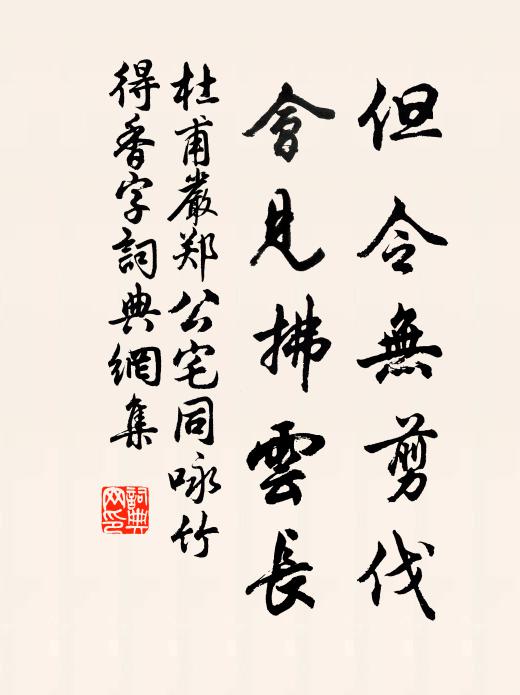 但令無剪伐
會見拂雲長
杜甫嚴郑公宅同咏竹
得香字詞典網集
詞典网印